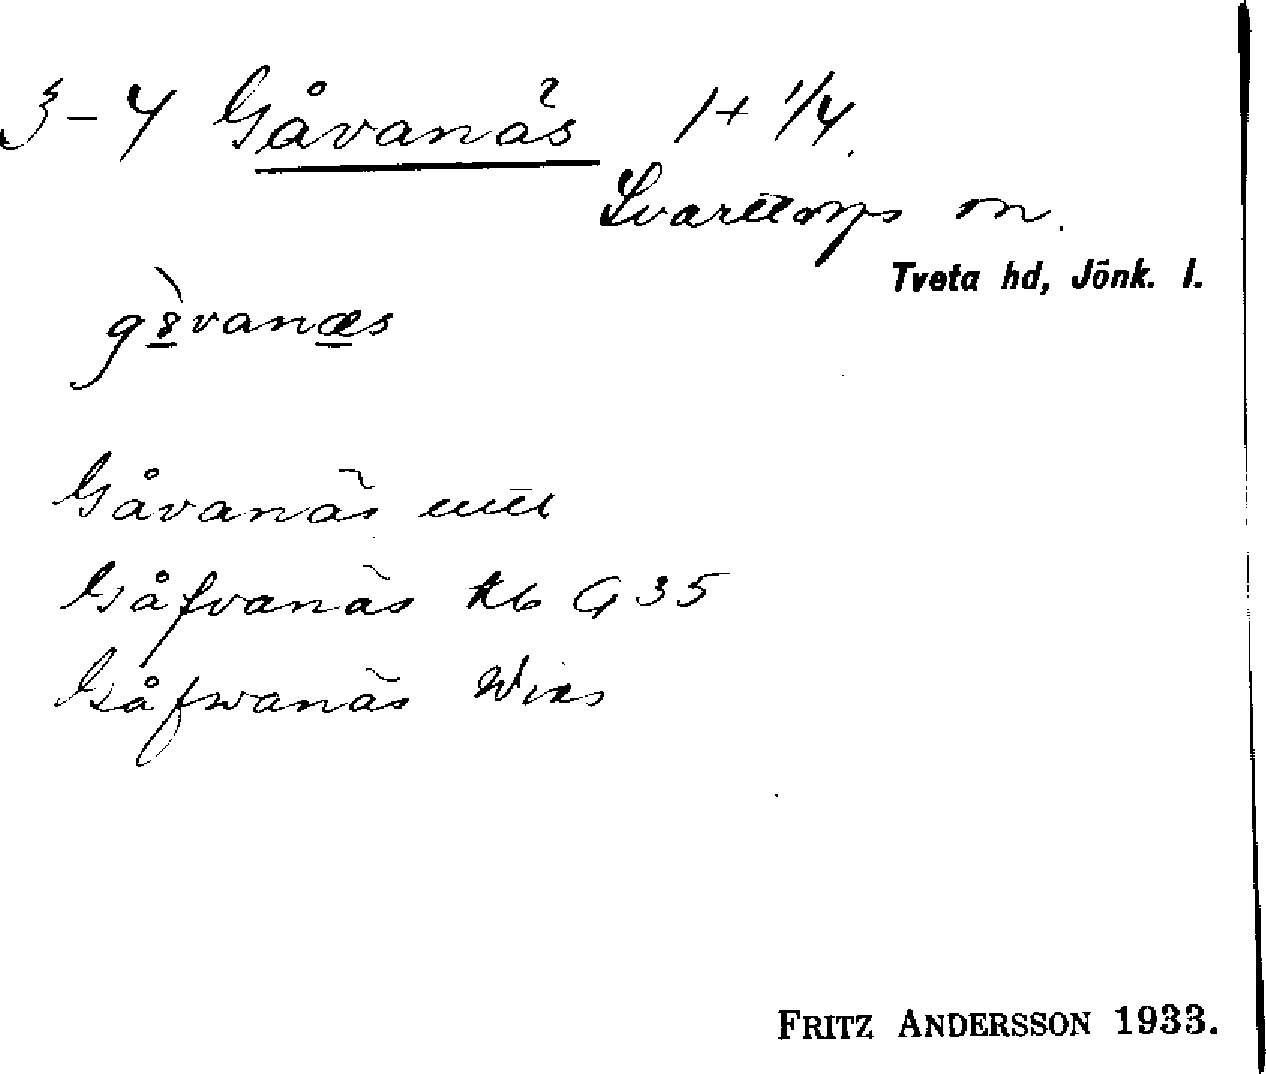 3-4 Gåvanäs 1+ 1/4.
Svarttorps sn.
Tveta hd, Jönk. l.
Gåvanäs uttl
Gåfvanäs Kb G 35
Gåfwanäs Wies
FRITZ ANDERSSON 1933.